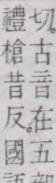 切。古音在五部
禮槍昔反。國語